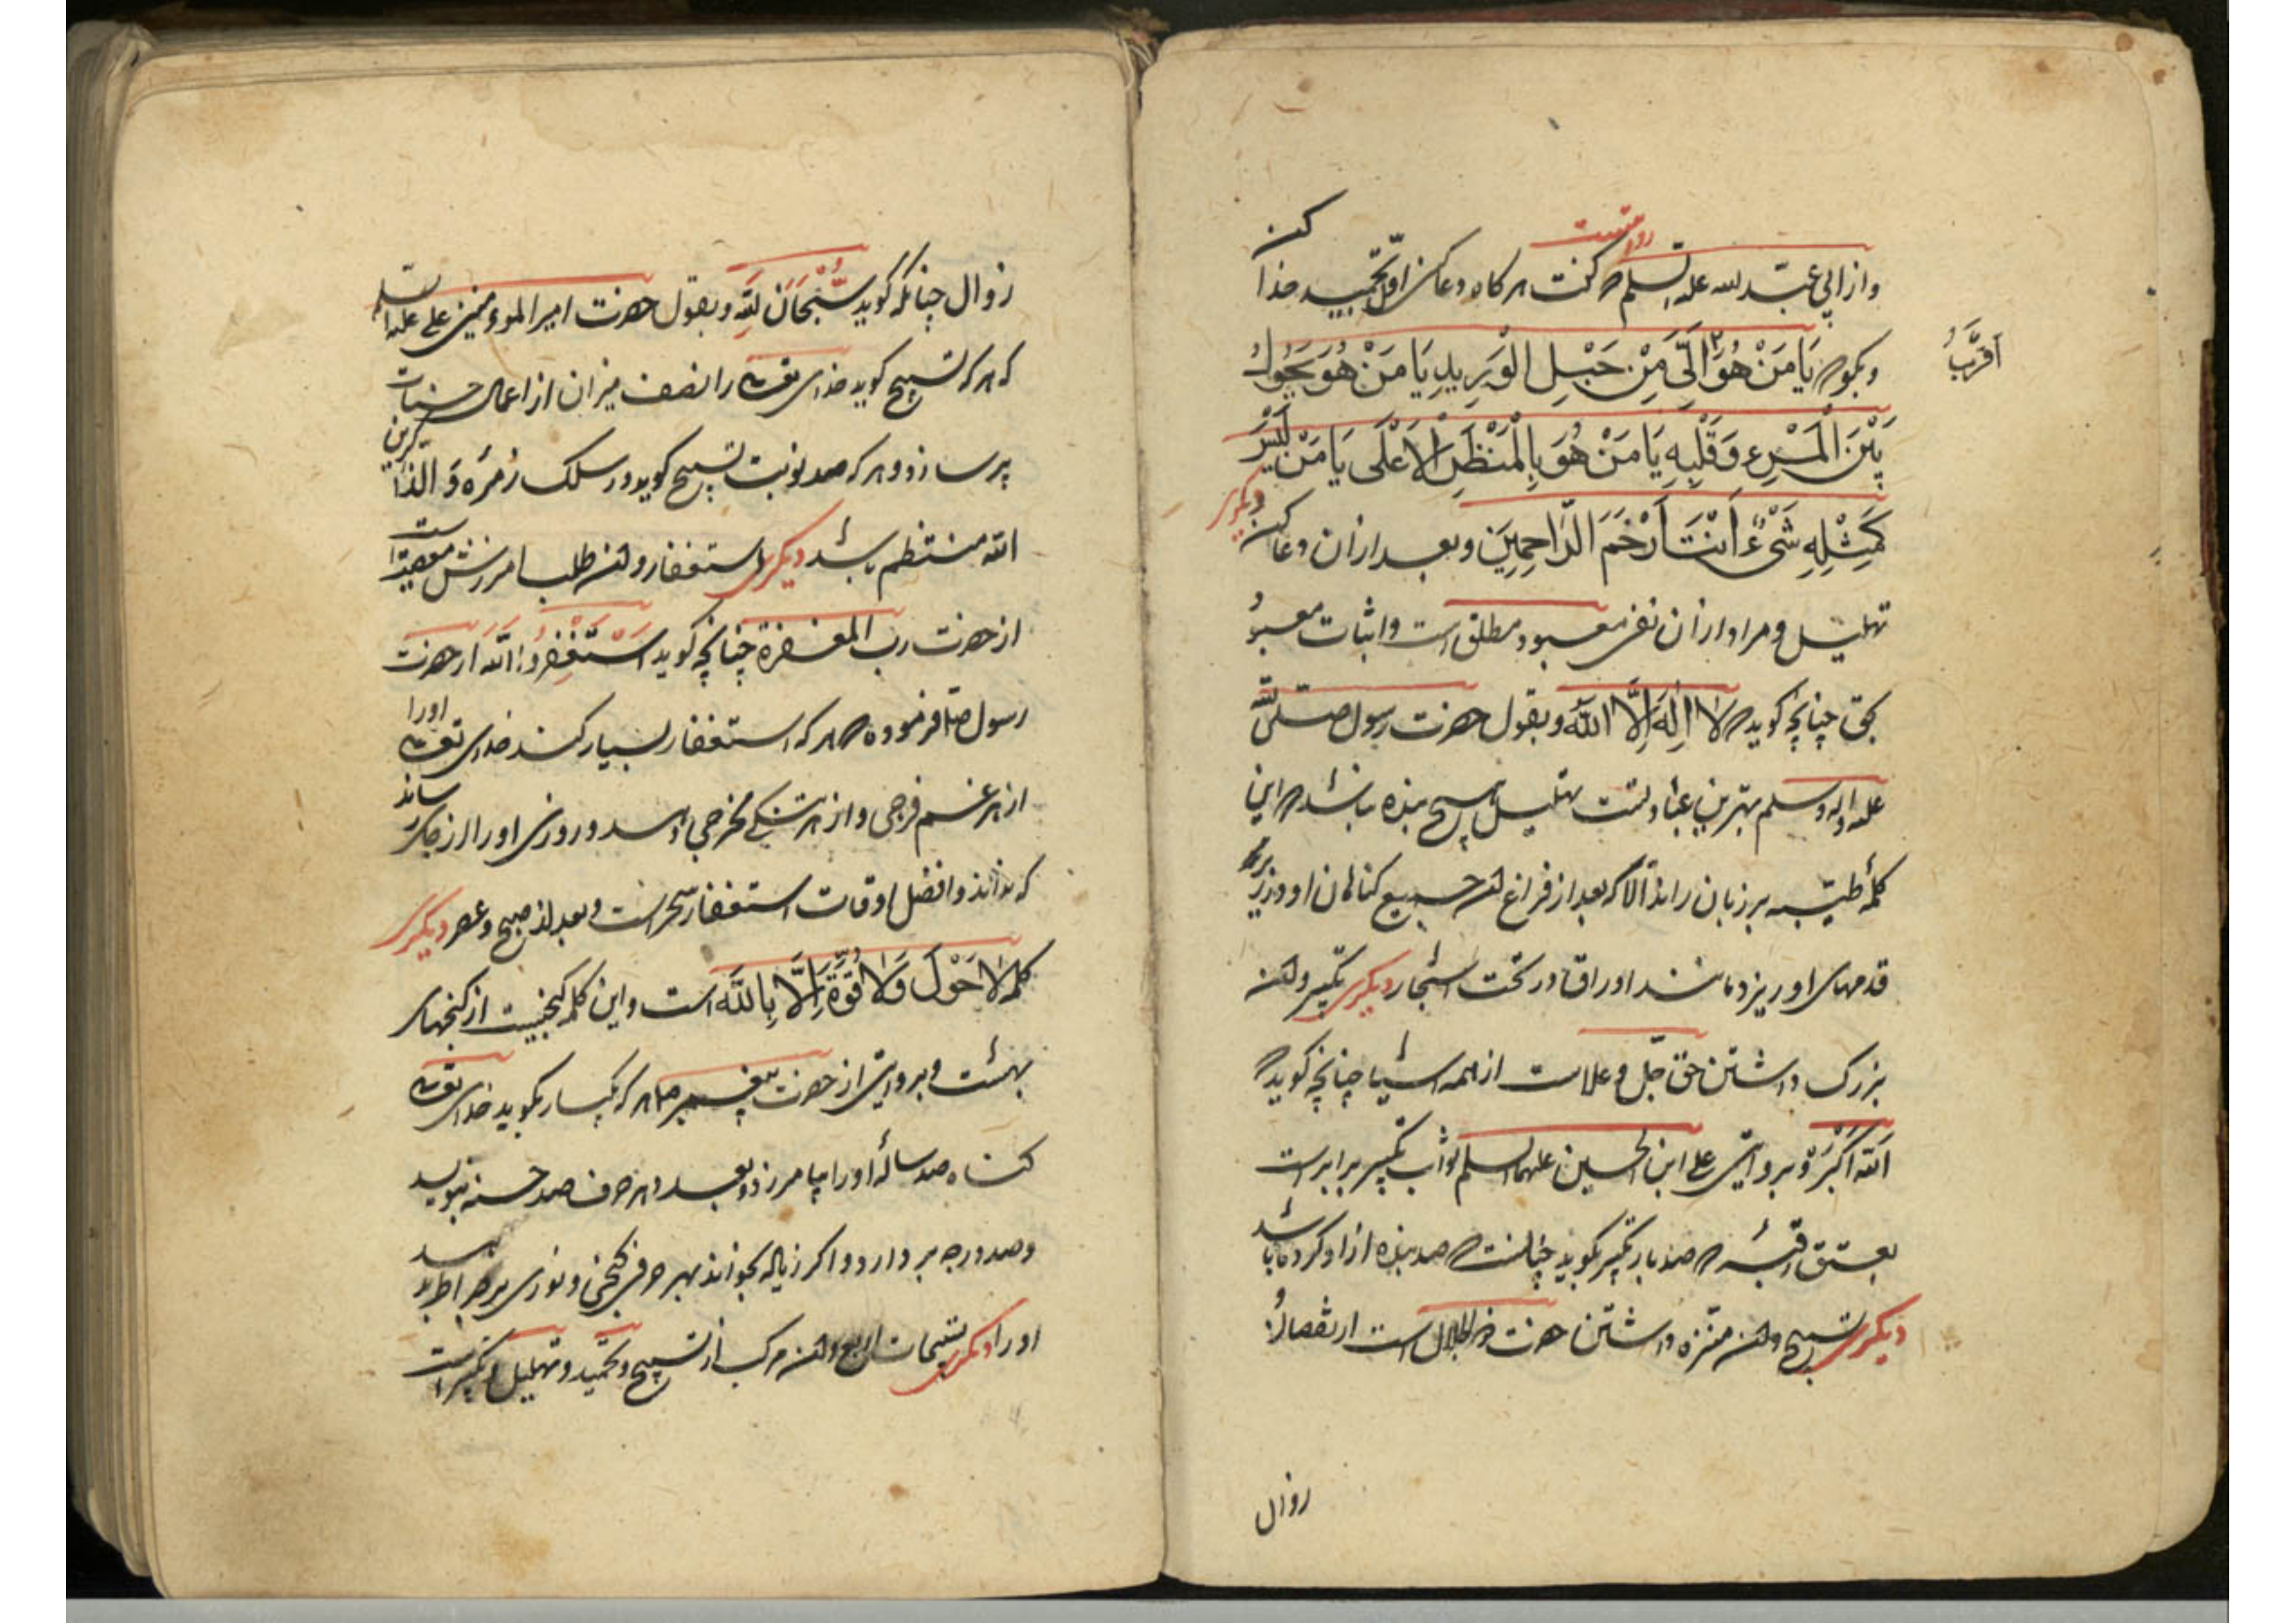 کن
روایتست
و از ابی عبد الله علیه السلم که گفت هرگاه دعا کنی اول تحمید خدا
اَقْرَبُ
و بگو که یَا مَنْ هُوَ اِلَیَّ مِنْ حَبْلِ الْوَرِیدِ یَا مَنْ هُوَ یَحُولُ
بَیْنَ الْمَرْءِ وَقَلْبِهِ یَا مَنْ هُوَ بِالْمَنْظَرِ الْاَعْلَی یَا مَنْ لَیْسَ
کَمِثْلِهِ شَیْءٌ اَنْتَ اَرْحَمَ الرَّاحِمِیَن و بعد از ان دعا کن دیگری
تهلیل و مراد از ان نفی معبود مطلق است و اثبات معبود
بحق چنانچه کوید که لا اِلٰهَ اِلَّا اللّه و بقول حضرت رسول صلی الله
علیه و اله و سلم بهترین عبادت تهلیل تسبیح بنده باشد که این
کلمۀ طیبه بر زبان راند الا که بعد از فراغ جمیع کناهان او در زیر
قدمهای او ریزد مانند اوراق در تحت اشجار دیگری تکبیر
بزرک داشتن حق جل و علاست از همه اشیا چنانچه کوید که
اَللّه اَکْبَرْ و بروایتی علی ابن الحسین علیهما السلم ثواب تکبیر برابرست
بعتق رقبه که صد بار تکبیر بکوید چنانست که صد بنده ازاد کرده باشد
دیگری تسبیح منزه داشتن حضرت ذو الجلال است از نقصان
زوال
زوال چنانکه کوید سُبْحَانَ لله و بقول حضرت امیر الموءمنین علی علیه السلم
که هر که تسبیح کوید خدای تعالی را نصف میزان از اعمال حسنات
پر سازد و هر که صد نوبت تسبیح کوید در سلک زمره وَ الذاکرین
الله منتظم باشد دیگری استغفار طلب امرزش معصیت است
از حضرت رب المغفرة چنانچه کوید اَسْتَغْفِرُو الله از حضرت
رسول ص فرموده که هر که استغفار بسیار کند خدای تعالی او را
از هر غم فرجی و از هر تنکی مخرجی دهد و روزی او را از جای رساند
که نداند و افضل اوقات استغفار سحرست و بعد از صبح و عصر دیگری
کلمه لا حَوْلَ وَلا قُوَّةَ اِلَّا بِاللّه است و این کلمه کنجیست از کنجهای
بهشت و بروایتی از حضرت پیغمبر ص هر که یکبار بکوید خدای تعالی
کناه صد ساله او را بیامرزد و بعدد هر حرف صد حسنه بنویسد
و صد درجه بر دارد و اکر زیاده بخواند بهر حرفی کنجی و نوری بر صراط بود
او را دیگری تسبیحات اربع مرکب از تسبیح و تحمید و تهلیل و تکبیر است